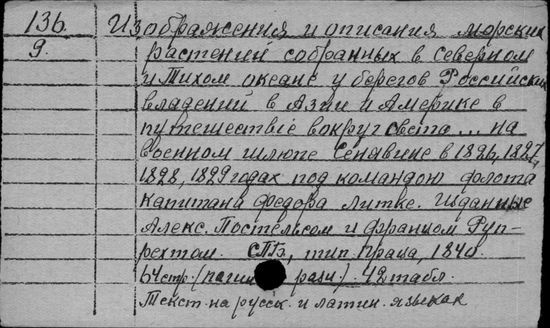 136. Изображения и описания морских
9. растений собранных в северном
и Тихом океане у берегов Российских
владений в Азии и Америке в
путешествіе вокруг света... на
военном шлюпе Сенявине в 1826, 1827,
1828, 1829 годах под командою флота
капитана Федора Литке. Изданные
Алекс. Постельсом и Францом Руп-
рехтом. СПБ, тип. Праца, 1840.
64 стр. (разн.). 42 табл.
Текст на русск. и латин. языках